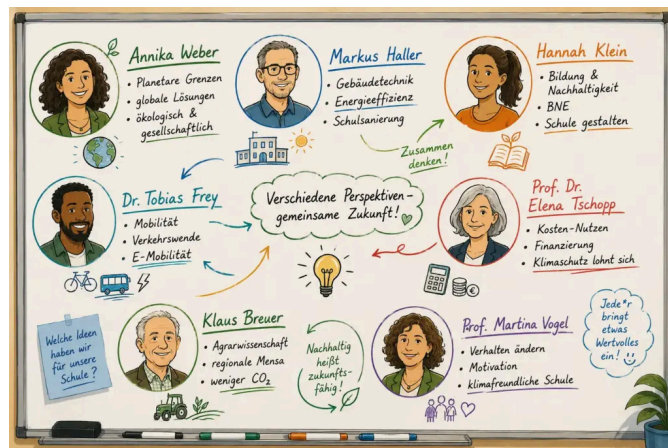 Annika Weber
• Planetare Grenzen
• globale Lösungen
• ökologisch &
gesellschaftlich
Markus Haller
• Gebäudetechnik
• Energieeffizienz
• Schulsanierung
Hannah Klein
• Bildung &
Nachhaltigkeit
• BNE
• Schule gestalten
Zusammen
denken!
Dr. Tobias Frey
• Mobilität
• Verkehrswende
• E-Mobilität
Verschiedene Perspektiven-
gemeinsame Zukunft!
Prof. Dr.
Elena Tschopp
• Kosten-Nutzen
• Finanzierung
• Klimaschutz lohnt sich
€
Welche Ideen
haben wir
für unsere
Schule?
Klaus Breuer
• Agrarwissenschaft
• regionale Mensa
• weniger CO₂
Nachhaltig
heißt
zukunfts-
fähig!
Prof. Martina Vogel
• Verhalten ändern
• Motivation
• klimafreundliche Schule
Jede*r
bringt
etwas
Wertvolles
ein!